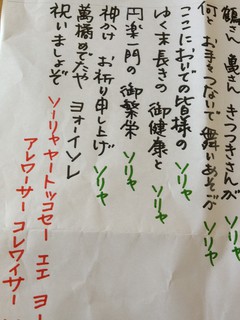 鶴さん 亀さん きつつきさんが ソリャ
何と お手々つないで 舞いあそぶが ソリャ
ここにおいでの皆様の ソリャ
ゆく末長きの 御健康と ソリャ
円楽一門の 御繁栄 ソリャ
神かけ お祈り申し上げ ソリャ
萬積めでたや ヨォーイソレ
祝いましょうぞ
ソーリャヤートッコセー エエ ヨー
アレワーサー コレワイサー